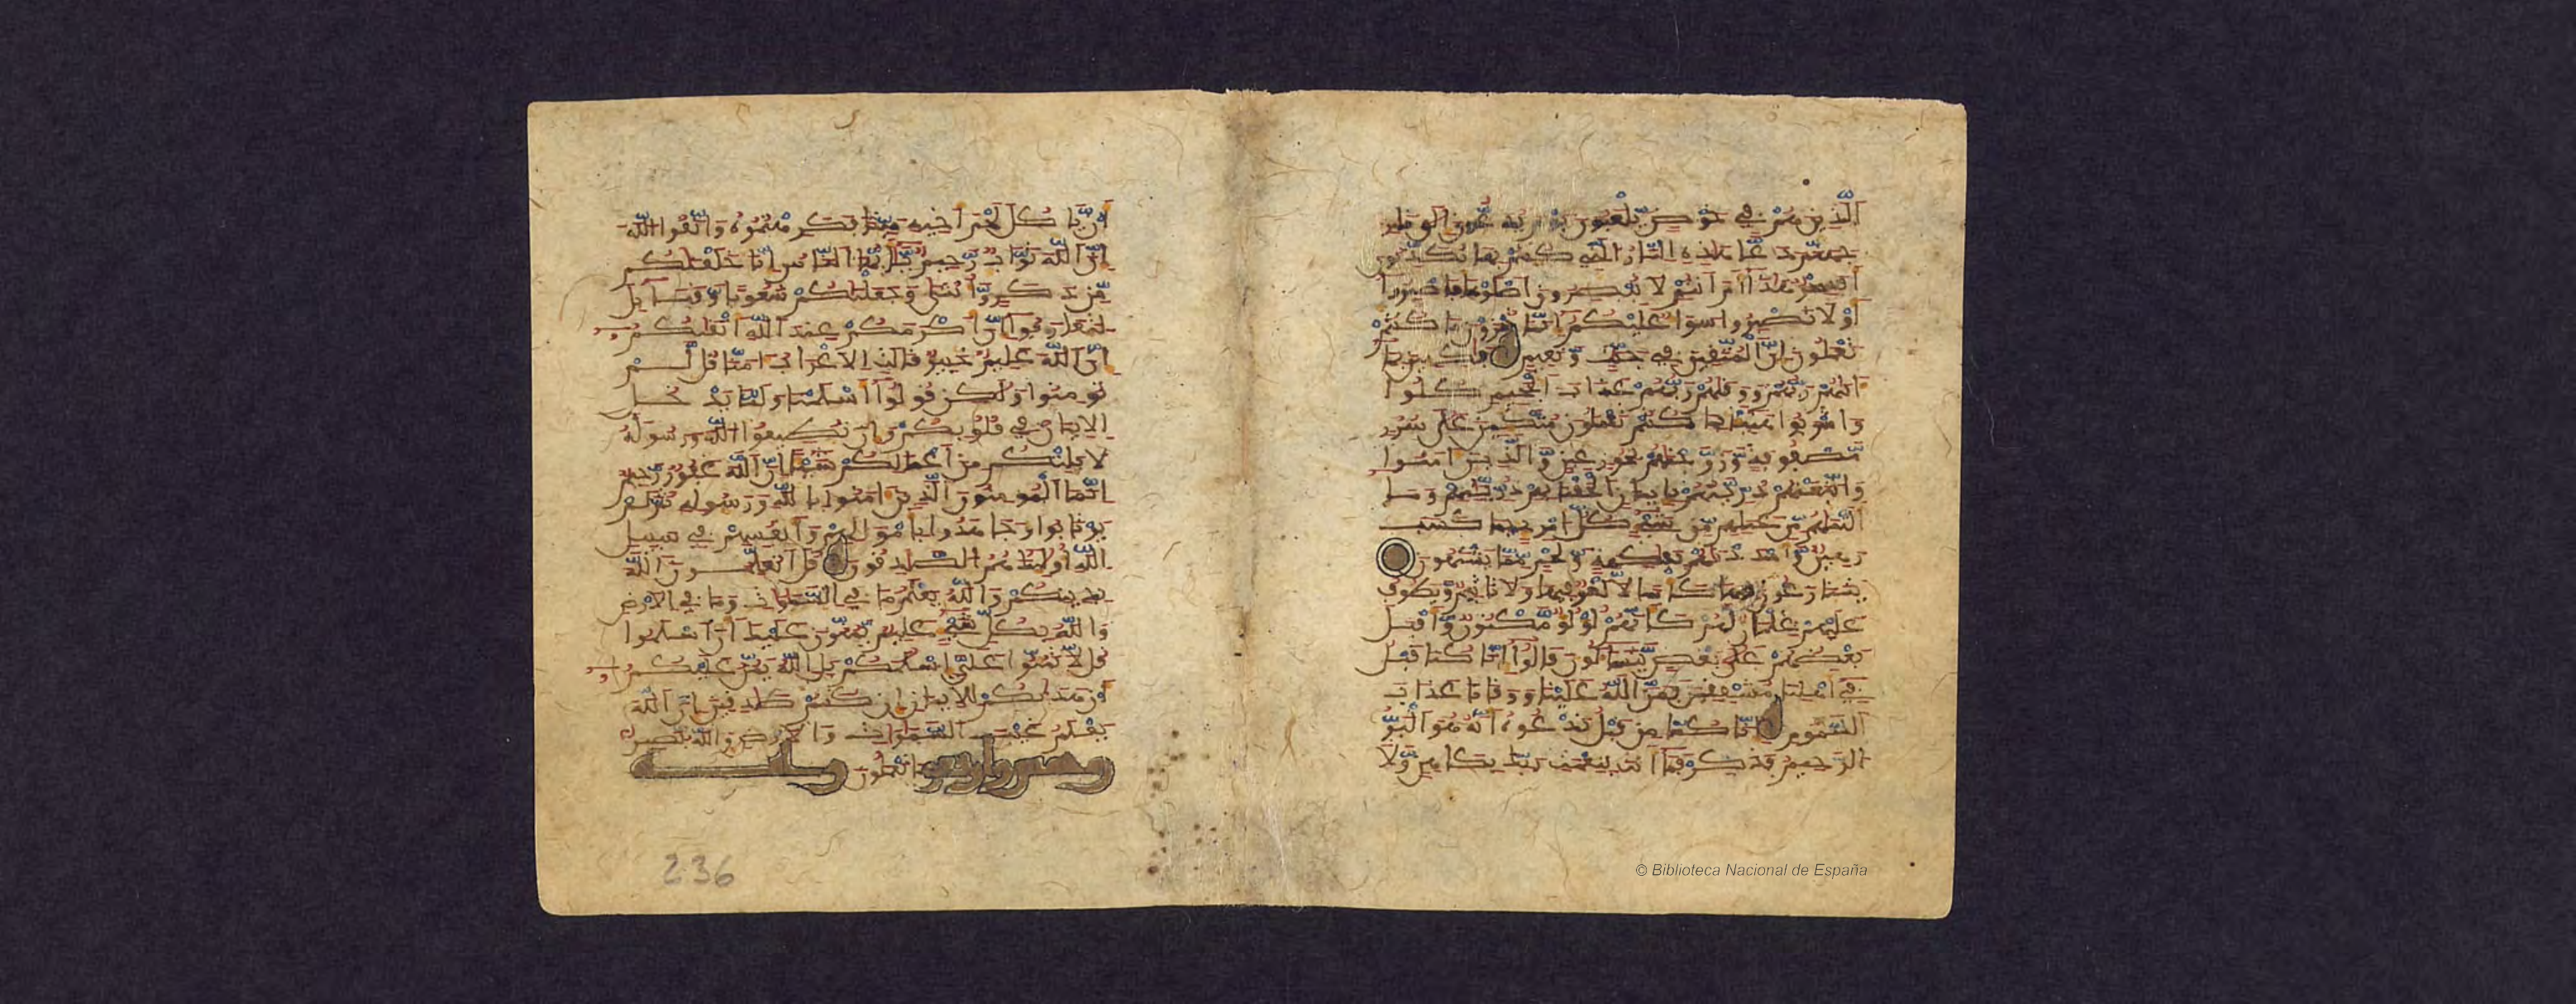 الذين هم في خوض يلعبون يوم يدعون الى نار
جهنم دعا هذه النار التي كنتم بها تكذبون
افسحر هذا ام انتم لا تبصرون اصلوها فاصبروا
او لا تصبروا سوا عليكم انما تجزون ما كنتم
تعملون ان المتقين في جنت ونعيم فكهين بما
اتيهم ربهم ووقيهم ربهم عذاب الجحيم كلوا
واشربوا هنيئا بما كنتم تعملون متكئين على سرر
مصفوفة وزوجنهم بحور عين والذين امنوا
واتبعتهم ذريتهم بايمان الحقنا بهم ذريتهم وما
التنهم من عملهم من شيء كل امرئ بما كسب
رهين وامددنهم بفكهة ولحم مما يشتهون
يتنزعون فيها كاسا لا لغو فيها ولا تاثيم ويطوف
عليهم غلمان لهم كانهم لؤلؤ مكنون واقبل
بعضهم على بعض يتساءلون قالوا انا كنا قبل
في اهلنا مشفقين فمن الله علينا ووقانا عذاب
السموم انا كنا من قبل ندعوه انه هو البر
الرحيم فذكر فما انت بنعمت ربك بكاهن ولا
ان ياكل لحم اخيه ميتا فكرهتموه واتقوا الله
ان الله تواب رحيم يايها الناس انا خلقنكم
من ذكر وانثى وجعلنكم شعوبا وقبايل
لتعارفوا ان اكرمكم عند الله اتقيكم
ان الله عليم خبير قالت الاعراب امنا قل لم
تومنوا ولكن قولوا اسلمنا ولما يدخل
الايمان في قلوبكم وان تطيعوا الله ورسوله
لا يلتكم من اعملكم شيئا ان الله غفور رحيم
انما المومنون الذين امنوا بالله ورسوله ثم لم
يرتابوا وجاهدوا باموالهم وانفسهم في سبيل
الله اولئك هم الصدقون قل اتعلمون الله
بدينكم والله يعلم ما في السموات وما في الارض
والله بكل شيء عليم يمنون عليك ان اسلموا
قل لا تمنوا علي اسلمكم بل الله يمن عليكم
ان هديكم للايمان ان كنتم صدقين ان الله
يعلم غيب السموات والارض والله بصير
وخمس واربعون بما تعملون
236
© Biblioteca Nacional de España